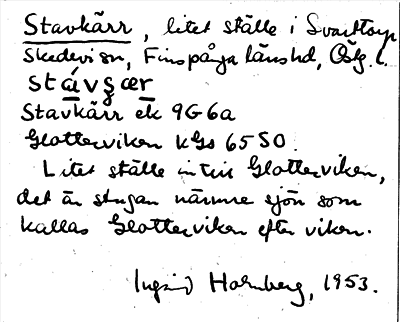 Stavkärr, litet ställe i Svarttorp
Skedevi sn, Finspånga länshd, Östg. l.
stávɕær
Stavkärr ek 9G6a
Glotterviken kGs 65 SO.
Litet ställe intill Glotterviken,
det är stugan närmre sjön som
kallas Glotterviken efter viken.
Ingrid Holmberg, 1953.